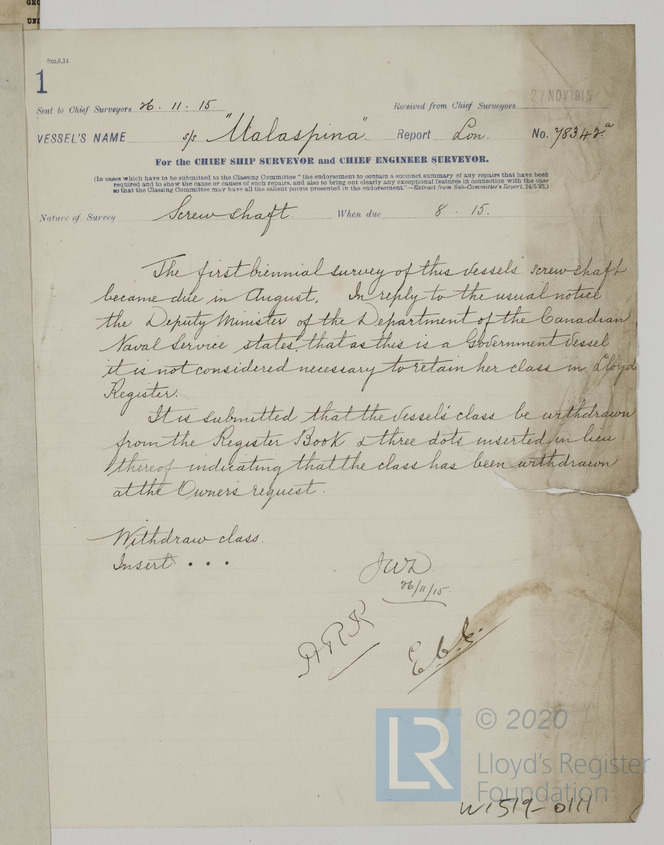 8m,6.14.
1
Sent to Chief Surveyors 26. 11. 15. Received from Chief Surveyors
27 NOV 1915
VESSEL'S NAME s/s "Malaspina" Report Lon. No. 78342a
For the CHIEF SHIP SURVEYOR and CHIEF ENGINEER SURVEYOR.
(In cases which have to be submitted to the Classing Committee "the endorsement to contain a succinct summary of any repairs that have been
required and to show the cause or causes of such repairs, and also to bring out clearly any exceptional features in connection with the case
so that the Classing Committee may have all the salient points presented in the endorsement."—Extract from Sub-Committee's Report,
Nature of Survey Screw shaft When due 8. 15.
The first biennial survey of this vessel's screw shaft
became due in August. In reply to the usual notice
the Deputy Minister of the Department of the Canadian
Naval Service states that as this is a Government Vessel
it is not considered necessary to retain her class in Lloyds
Register.
It is submitted that the vessel's class be withdrawn
from the Register Book & three dots inserted in lieu
thereof indicating that the class has been withdrawn
at the Owner's request.
Withdraw class.
Insert . . .
JWD
26/11/15.
ARK
LR © 2020
Lloyd's Register
Foundation
W1519-0111